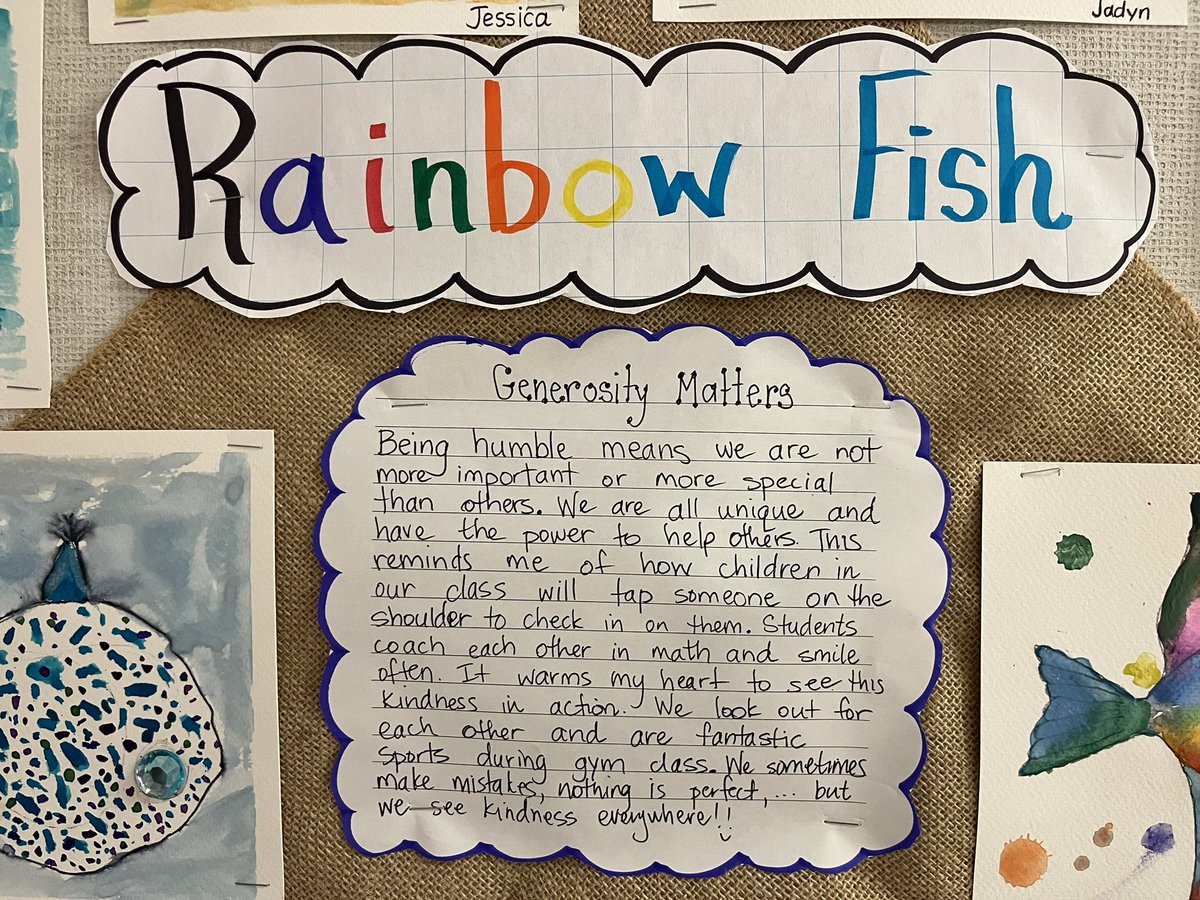 Jessica
Jadyn
Rainbow Fish
Generosity Matters
Being humble means we are not
more important or more special
than others. We are all unique and
have the power to help others. This
reminds me of how children in
our class will tap someone on the
shoulder to check in on them. Students
coach each other in math and smile
often. It warms my heart to see this
kindness in action. We look out for
each other and are fantastic
sports during gym class. We sometimes
make mistakes, nothing is perfect,... but
we see kindness everywhere!!